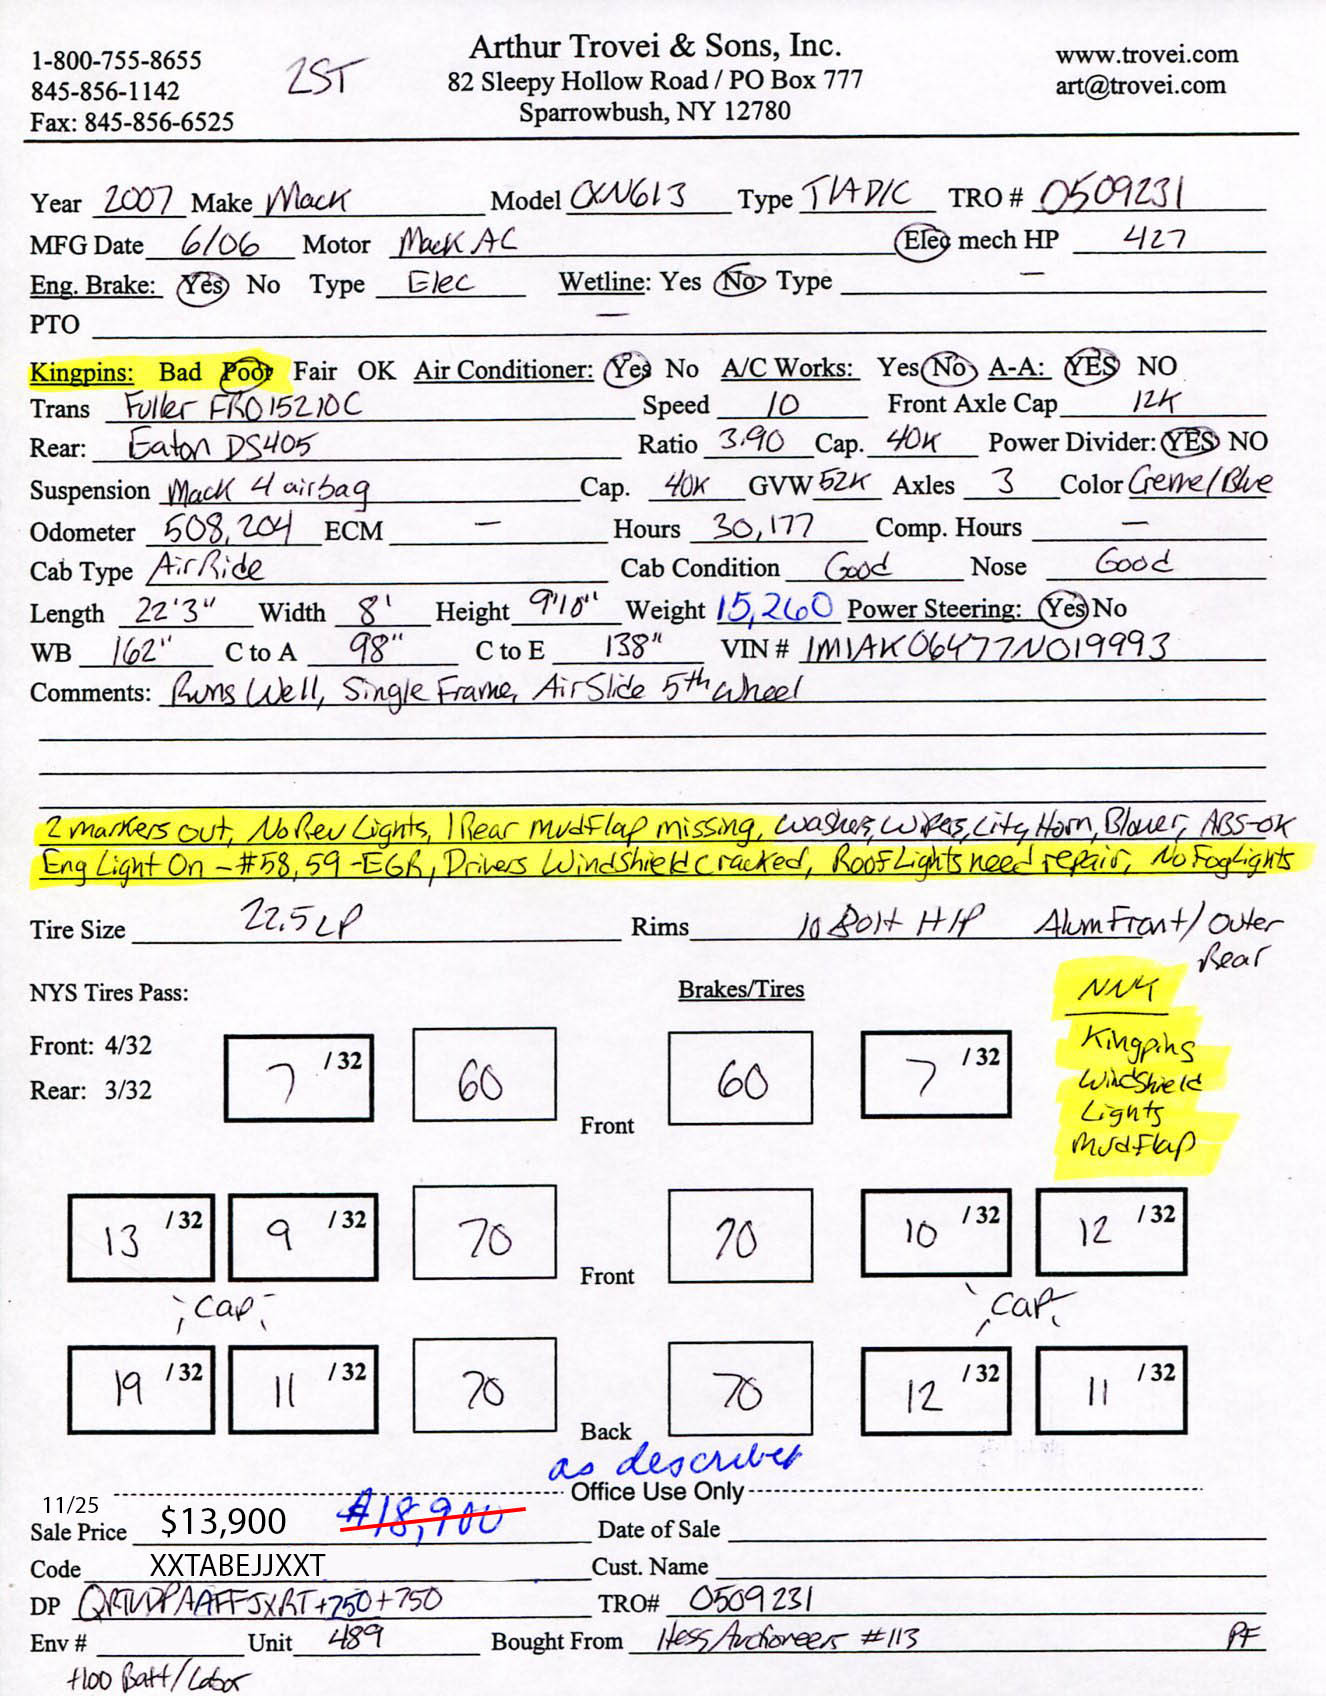 1-800-755-8655
845-856-1142
Fax: 845-856-6525
2ST
Arthur Trovei & Sons, Inc.
82 Sleepy Hollow Road / PO Box 777
Sparrowbush, NY 12780
www.trovei.com
art@trovei.com
Year 2007 Make Mack Model CXN613 Type T/A D/C TRO # 0509231
MFG Date 6/06 Motor Mack AC Elec mech HP 427
Eng. Brake: Yes No Type Elec Wetline: Yes No Type —
PTO —
Kingpins: Bad Poor Fair OK Air Conditioner: Yes No A/C Works: Yes No A-A: YES NO
Trans Fuller FRO15210C Speed 10 Front Axle Cap 12K
Rear: Eaton DS405 Ratio 3.90 Cap. 40K Power Divider: YES NO
Suspension Mack 4 airbag Cap. 40K GVW 52K Axles 3 Color Creme/Blue
Odometer 508,204 ECM — Hours 30,177 Comp. Hours —
Cab Type Air Ride Cab Condition Good Nose Good
Length 22'3" Width 8' Height 9'10" Weight 15,260 Power Steering: Yes No
WB 162" C to A 98" C to E 138" VIN # 1M1AK06Y77N019993
Comments: Runs Well, Single Frame, Air Slide 5th wheel
2 markers out, No Rev Lights, 1 Rear mudflap missing, washers, wipers, City Horn, Blower, ABS-OK
Eng Light On - #58, 59 - EGR, Drivers Windshield cracked, Roof Lights need repair, No Fog Lights
Tire Size 22.5 LP Rims 10 Bolt H/P Alum Front/Outer
Rear
NYS Tires Pass: Brakes/Tires NNY
Front: 4/32 7 /32 60 60 7 /32 Kingpins
Rear: 3/32 Windshield
Front Lights
Mudflap
13 /32 9 /32 70 70 10 /32 12 /32
Front
Cap Cap
19 /32 11 /32 70 70 12 /32 11 /32
Back
as described
Office Use Only
11/25
Sale Price $13,900 $18,900 Date of Sale
Code XXTABEJJXXT Cust. Name
DP +750+750 TRO# 0509231
Env # Unit 489 Bought From Hess Auctioneers #113 PF
+100 Batt/Labor